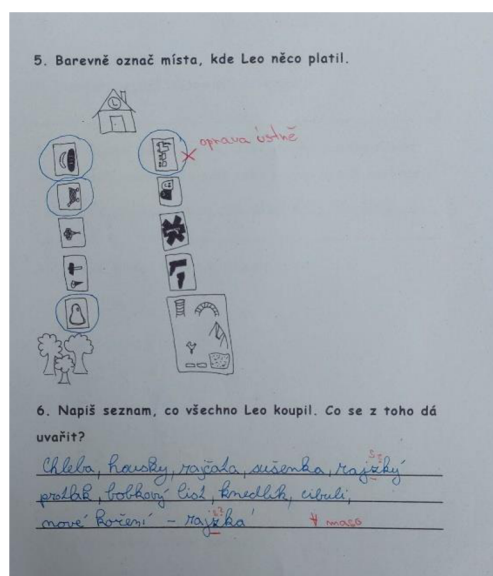 5. Barevně označ místa, kde Leo něco platil.
oprava ústně
6. Napiš seznam, co všechno Leo koupil. Co se z toho dá
uvařit?
Chleba, housky, rajčata, sušenka, rajzký
protlak, bobkový list, knedlík, cibuli,
nové koření – rajzká
maso